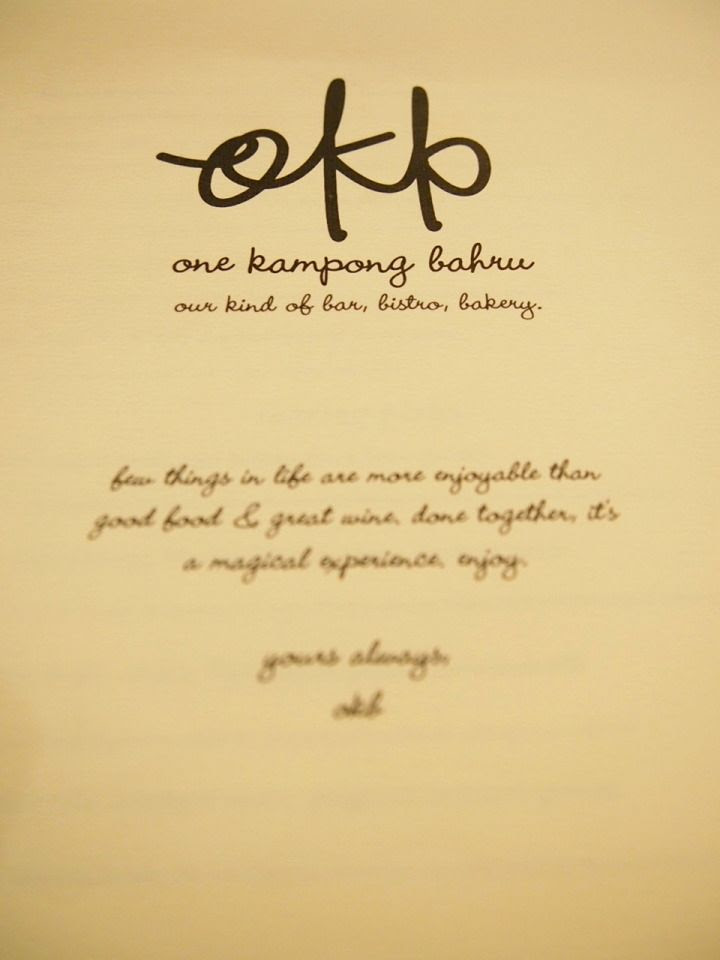 okb
one kampong bahru
our kind of bar, bistro, bakery.
few things in life are more enjoyable than
good food & great wine. done together, it's
a magical experience. enjoy.
yours always,
okb